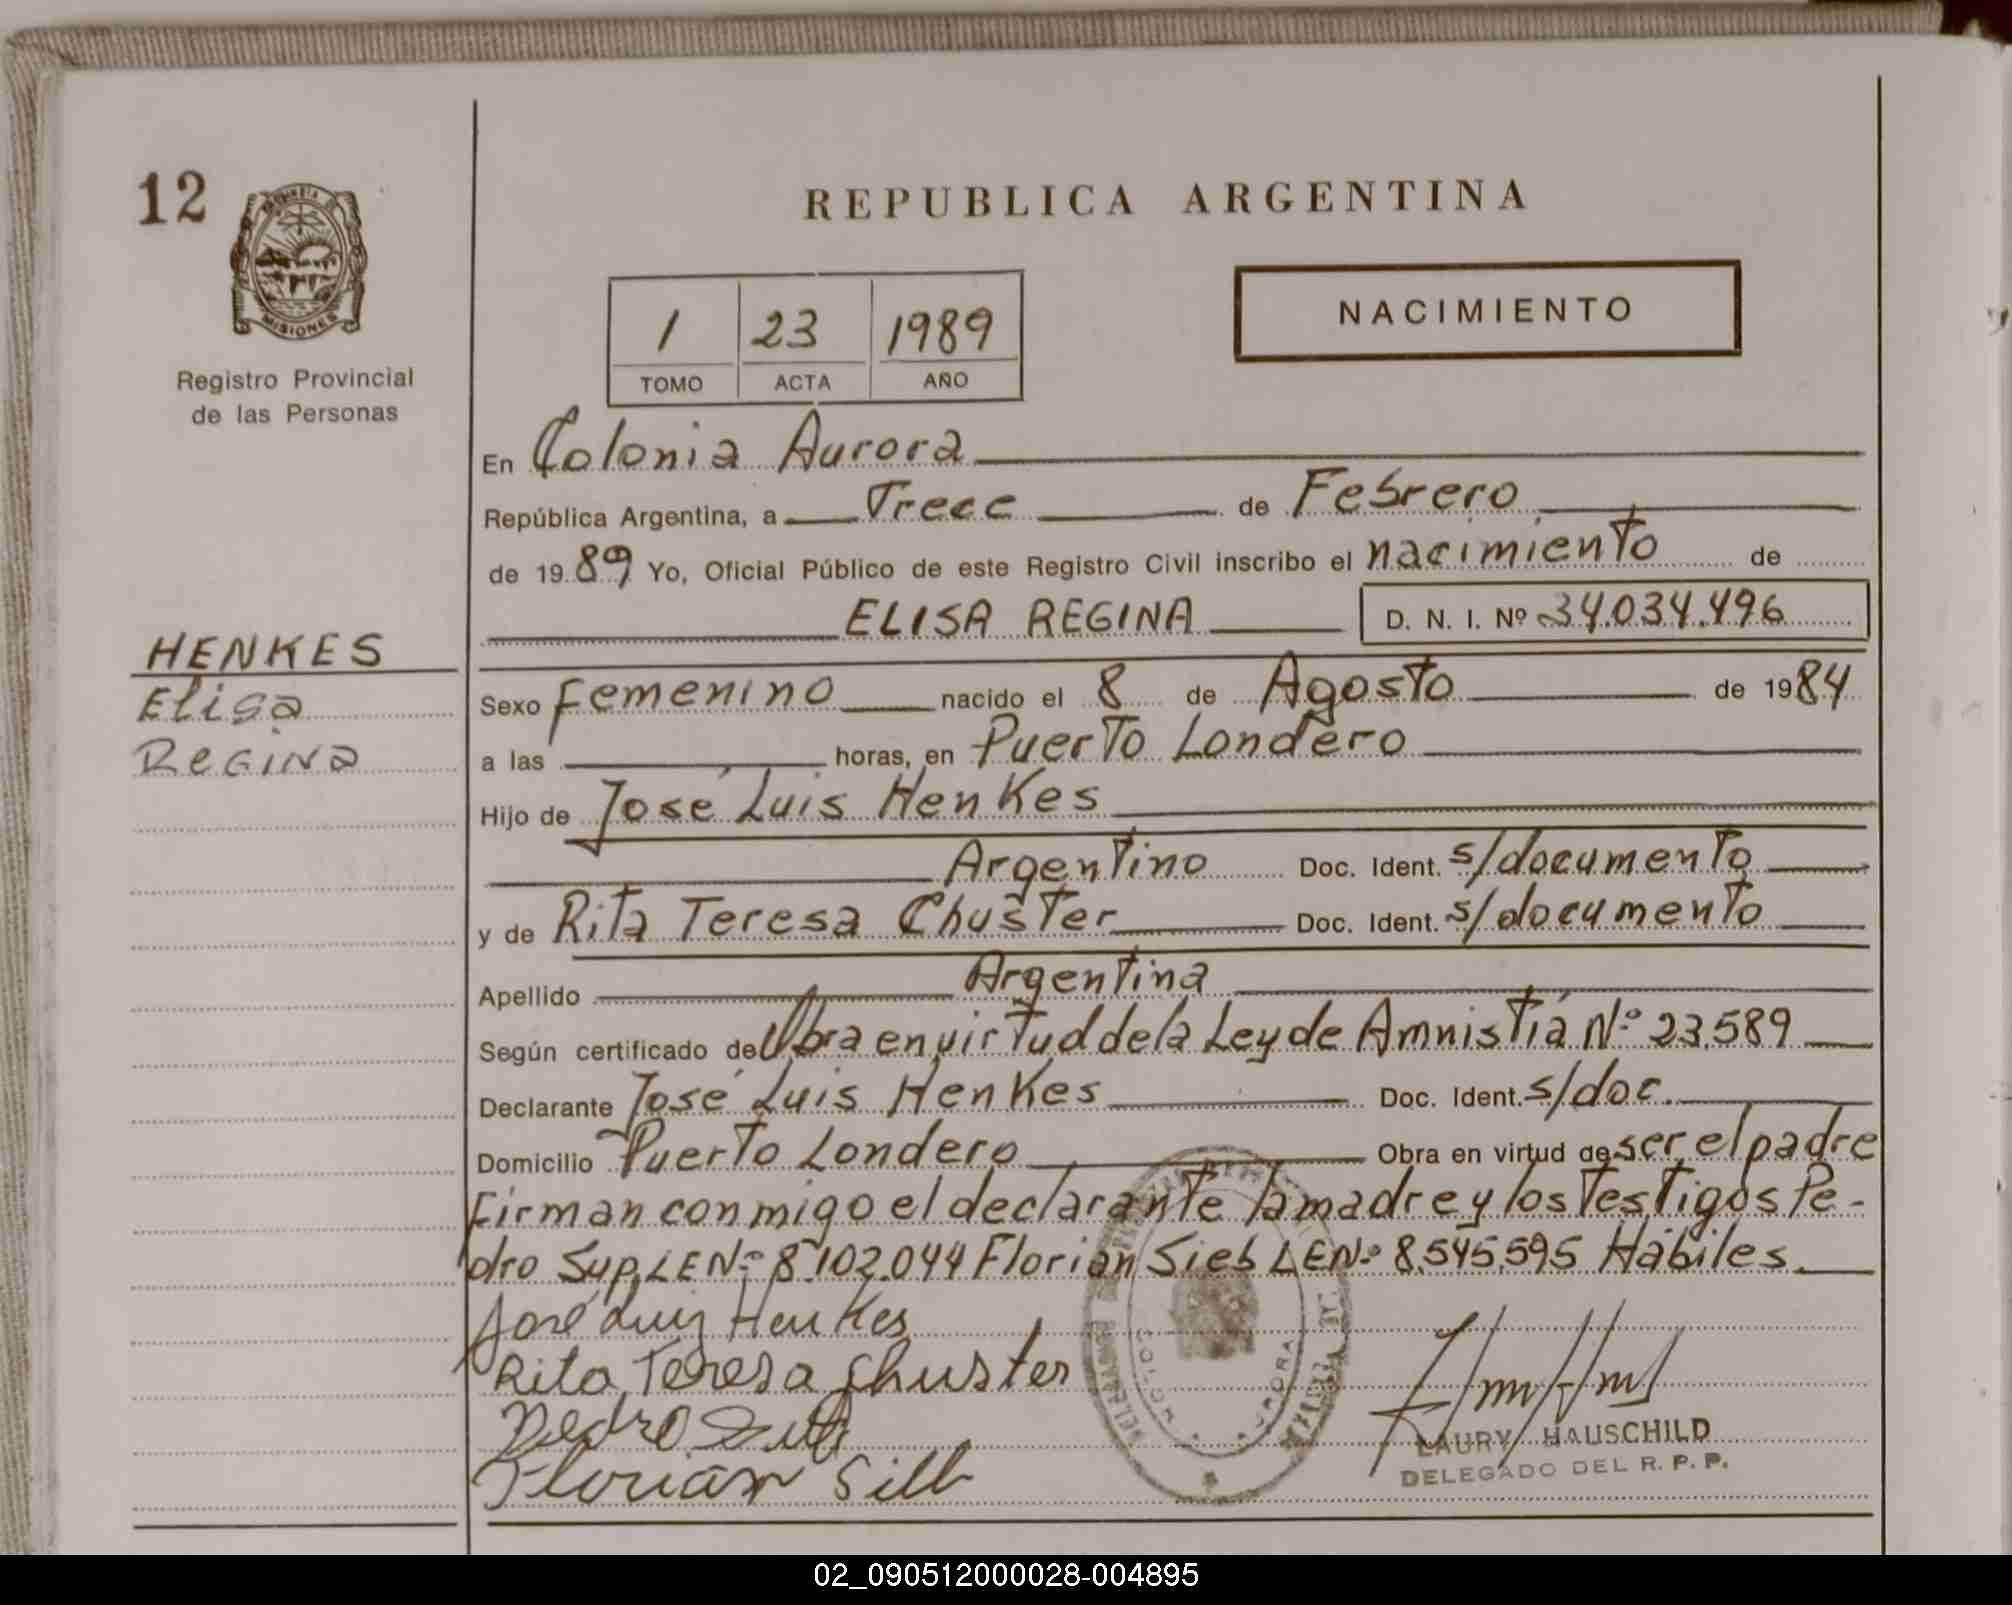 12
REPUBLICA ARGENTINA
MISIONES
Registro Provincial
de las Personas
1 23 1989
TOMO ACTA AÑO
NACIMIENTO
En Colonia Aurora
República Argentina, a Trece de Febrero
de 1989 Yo, Oficial Público de este Registro Civil inscribo el nacimiento de
ELISA REGINA D. N. I. Nº 34.034.496
HENKES
Elisa
Regina
Sexo Femenino nacido el 8 de Agosto de 1984
a las horas, en Puerto Londero
Hijo de José Luis Henkes
Argentino Doc. Ident. s/documento
y de Rita Teresa Chuster Doc. Ident. s/documento
Apellido Argentina
Según certificado de Obra en virtud de la Ley de Amnistía Nº 23.589
Declarante José Luis Henkes Doc. Ident. s/doc.
Domicilio Puerto Londero Obra en virtud de ser el padre
Firman conmigo el declarante la madre y los testigos Pe-
dro Sup LE Nº 8.102.044 Florian Sieb LE Nº 8.545.595 Hábiles.
José Luiz Henkes
Rita Teresa Chuster
Pedro
Florian Silb
LAURY HAUSCHILD
DELEGADO DEL R. P. P.
02_090512000028-004895